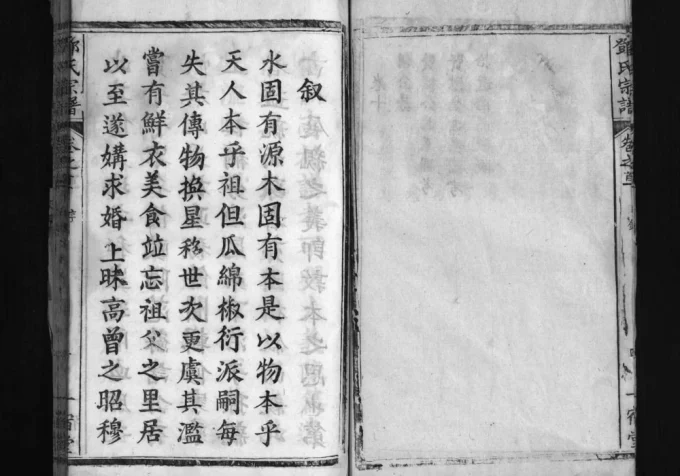 鄧氏宗譜
叙
水固有源木固有本是以物本乎
天人本乎祖但瓜綿椒衍派嗣每
失其傳物换星移世次更虞其濫
嘗有鮮衣美食竝忘祖父之里居
以至遂媾求婚上昧高曾之昭穆
鄧氏宗譜